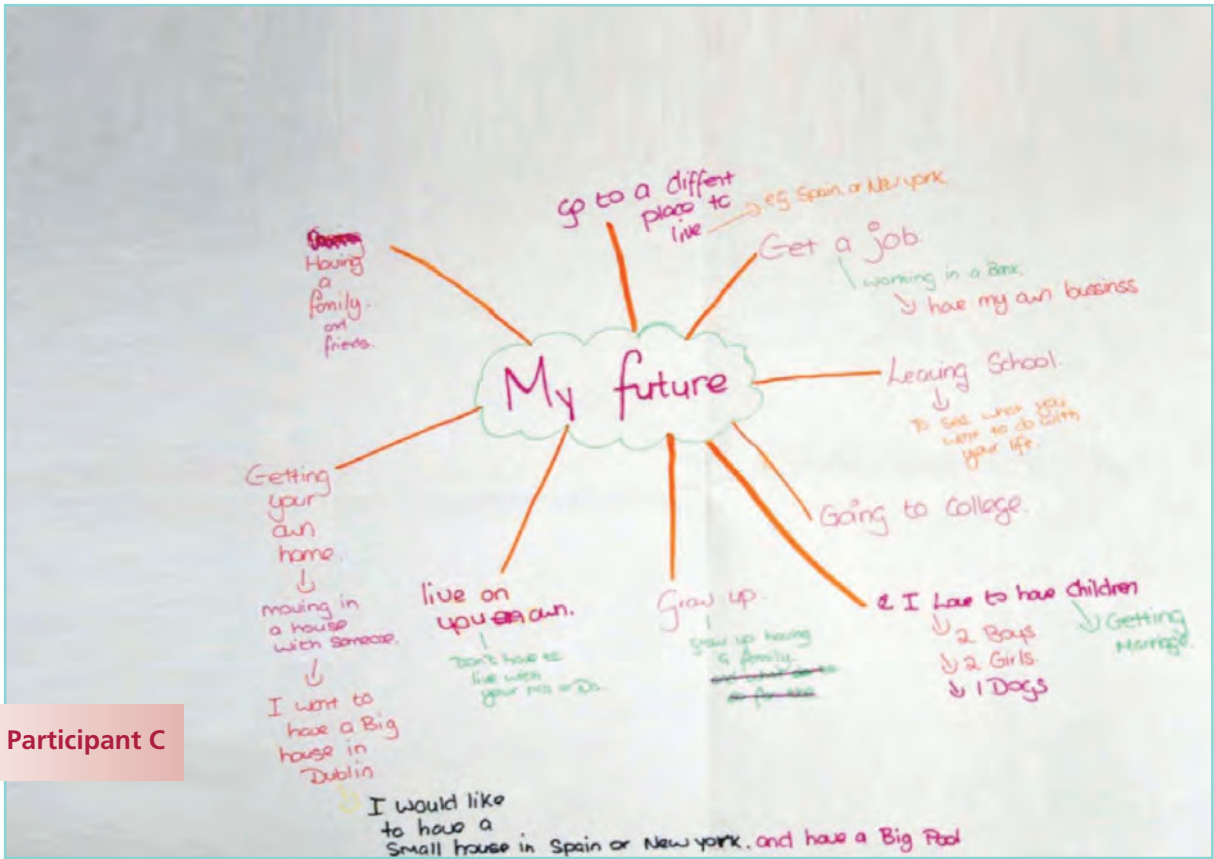 My future
go to a differt
place to
live
eg Spain or New york.
Get a job.
working in a Bank.
have my own bussinss
Leaving School.
To see what you
want to do with
your life.
Going to College.
& I Love to have Children
2 Boys
2 Girls.
1 Dogs
Getting
Marriage.
Grow up.
grow up having
a family.
live on
your own.
Don't have to
live with
your ma or Da.
Getting
your
own
home.
moving in
a house
with someone.
I want to
have a Big
house in
Dublin
I would like
to have a
Small house in Spain or New york. and have a Big Pool
Having
a
family.
and
frieds.
Participant C